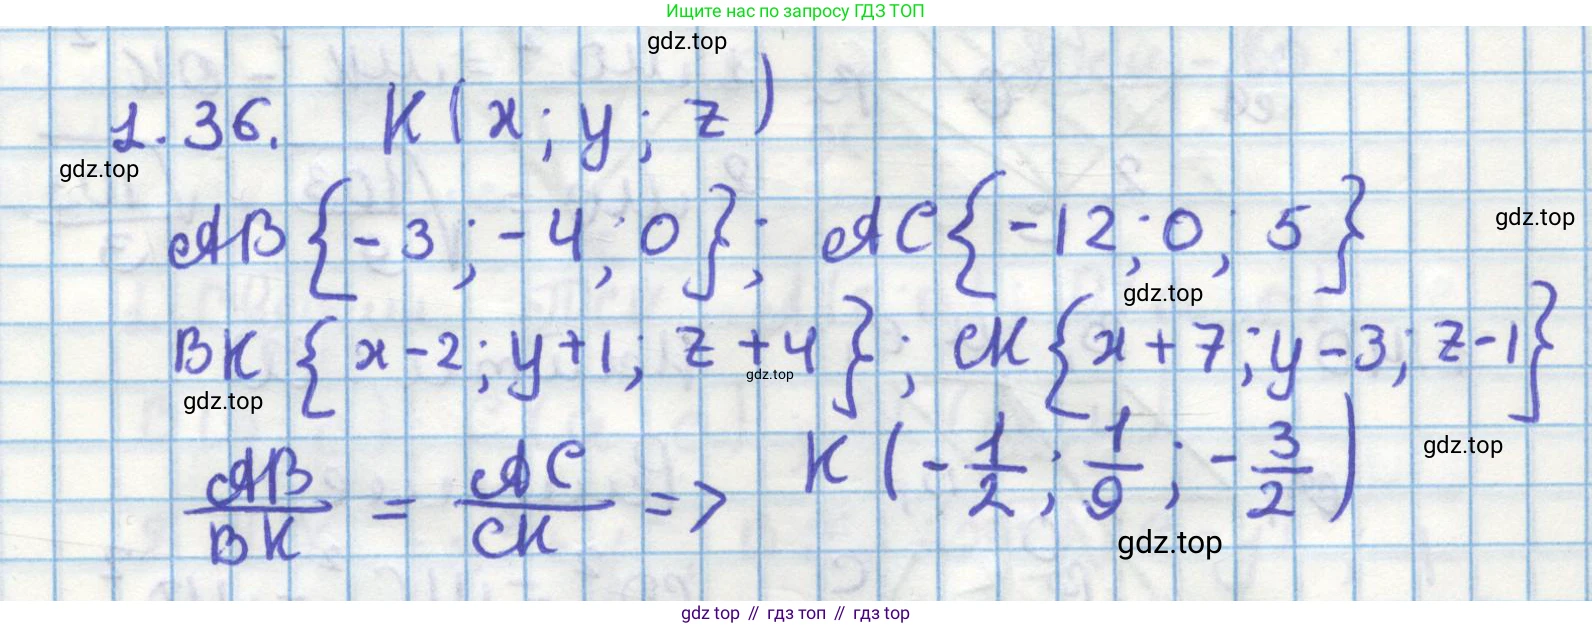 Ищите нас по запросу ГДЗ ТОП
gdz.top
1.36. K(x; y; z)
gdz.top
AB{-3; -4; 0}; AC{-12; 0; 5}
gdz.top
gdz.top
BK{x-2; y+1; z+4}; CK{x+7; y-3; z-1}
gdz.top
gdz.top
AB/BK = AC/CK => K(-1/2; 1/9; -3/2)
gdz.top
gdz.top
gdz top // гдз топ // гдз top